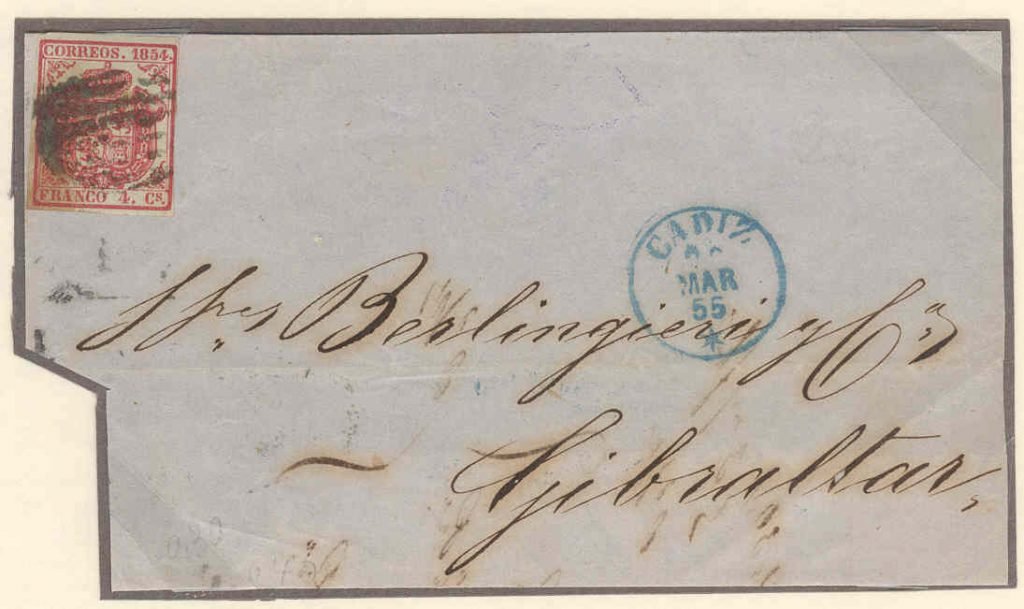 CORREOS. 1854.
FRANCO 4. Cs.
CADIZ
MAR
55
Sres Berlingieri y Ca
Gibraltar